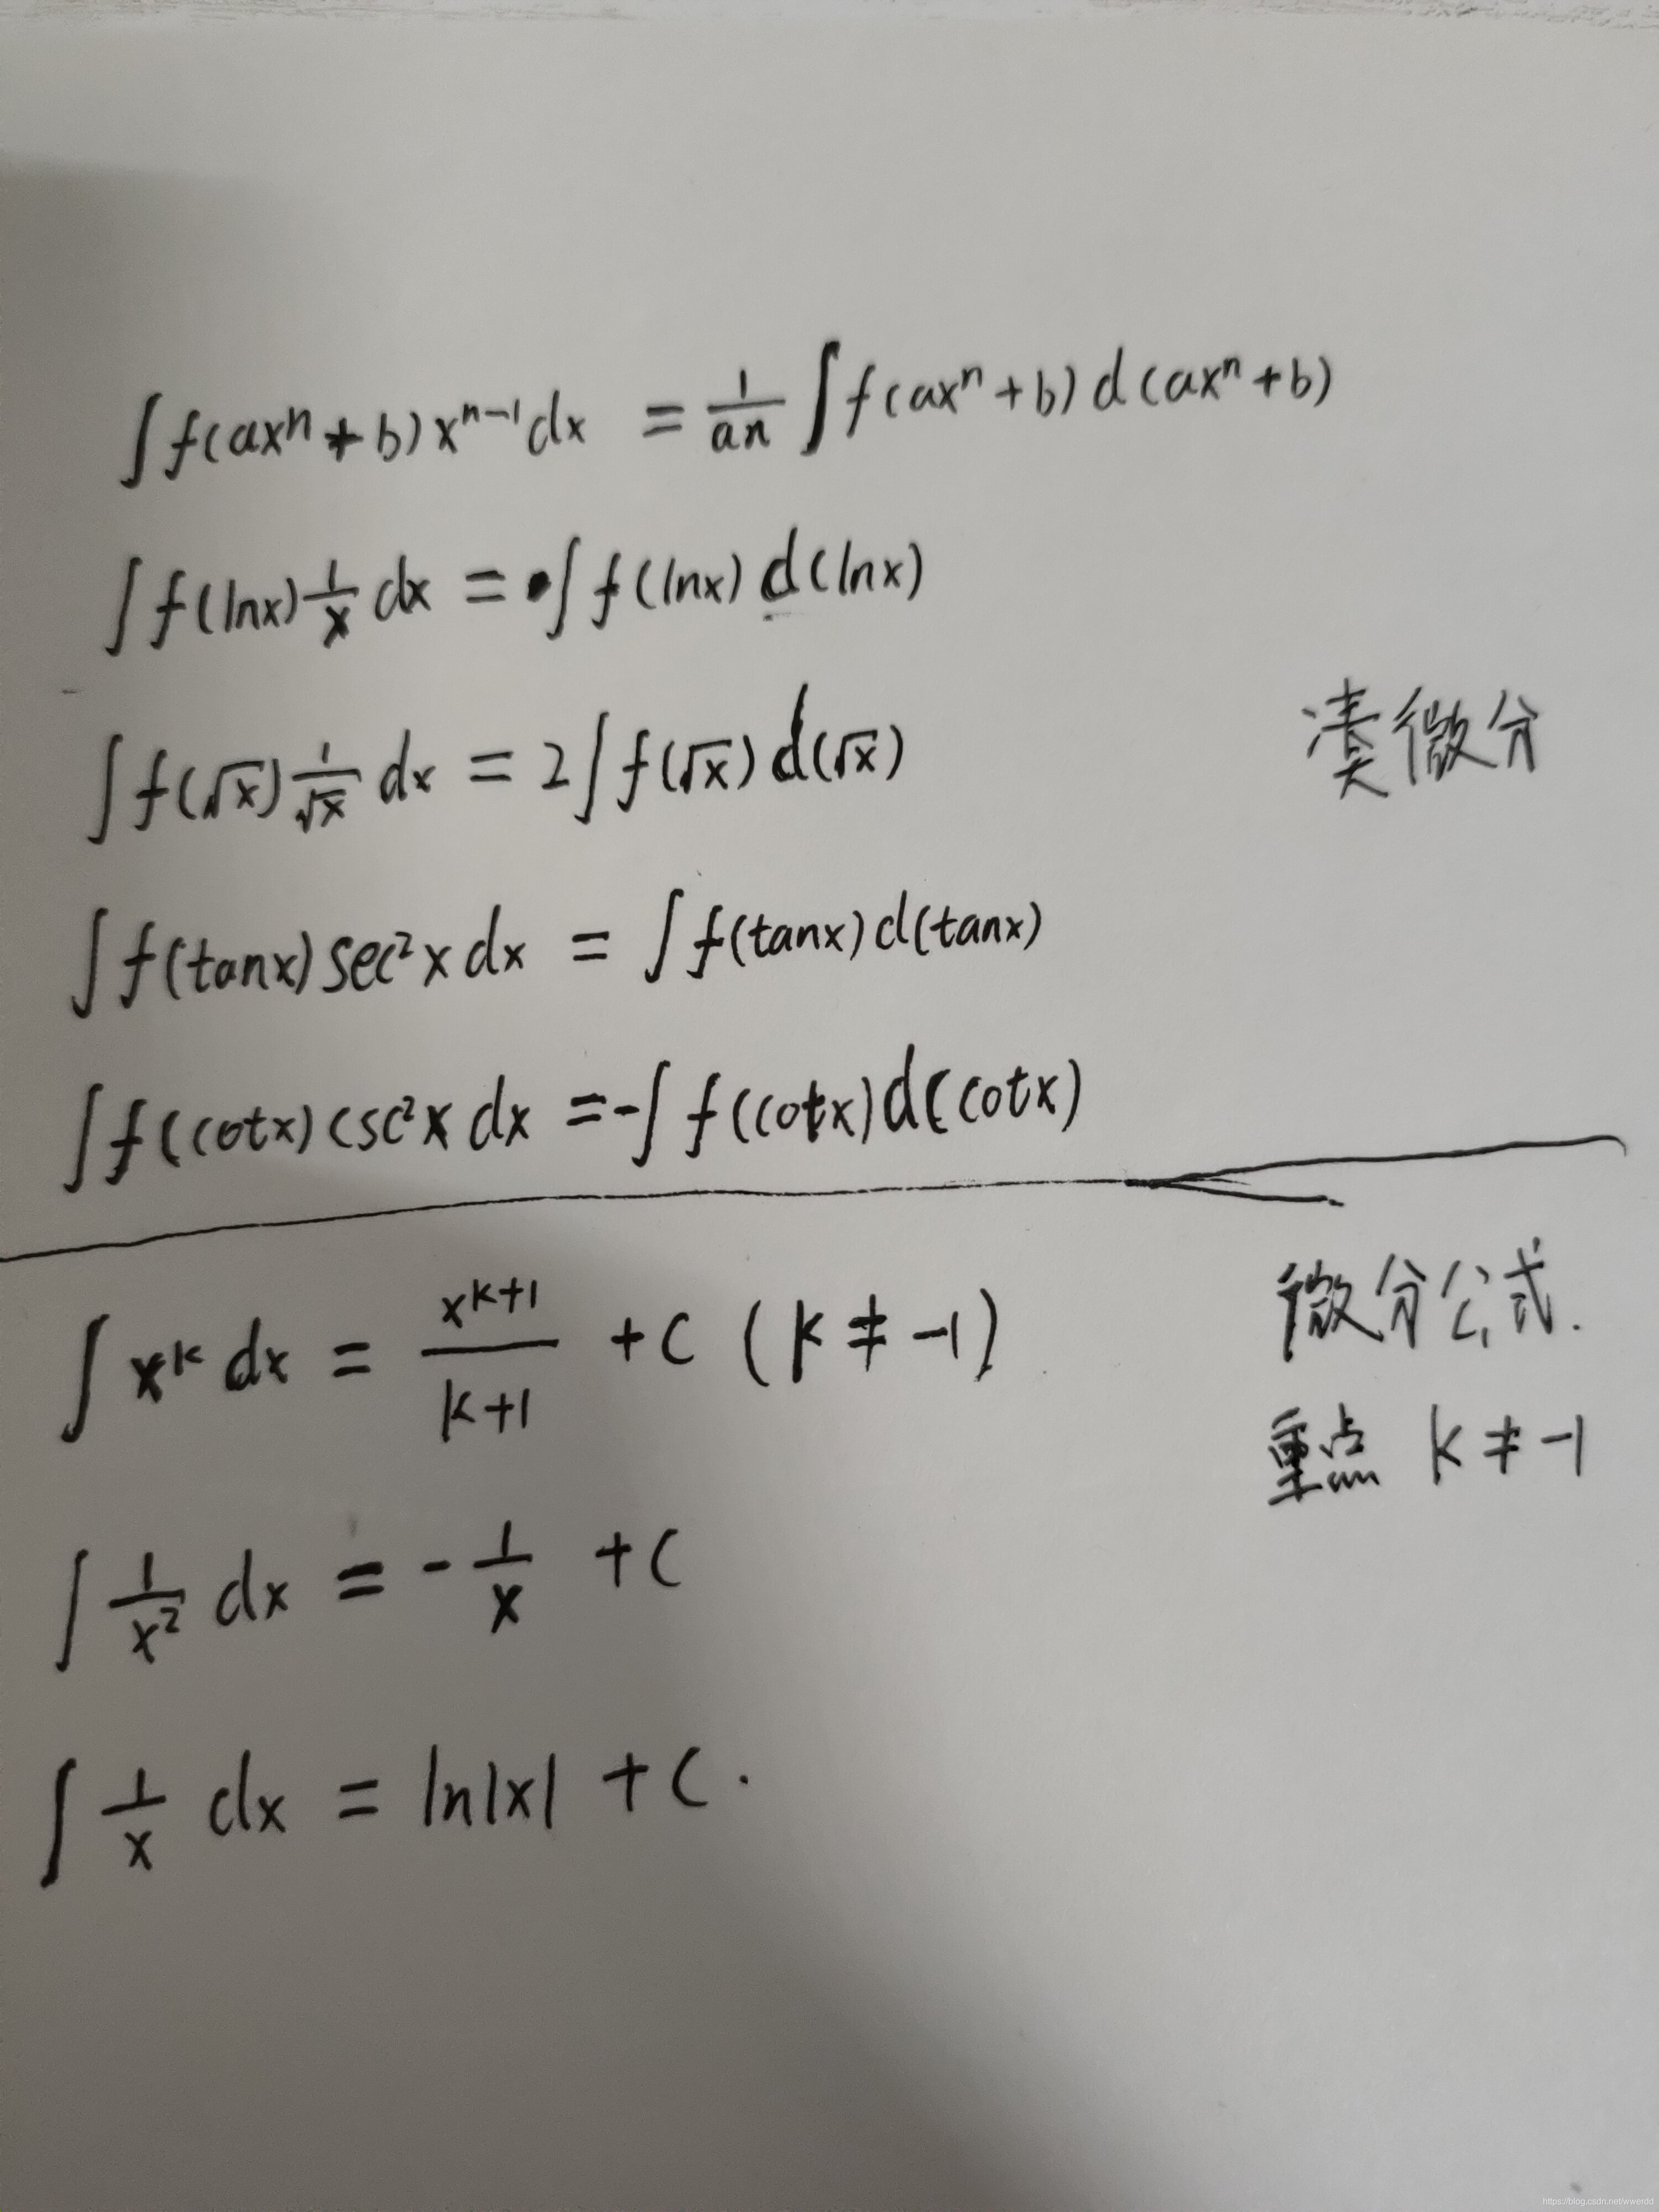 ∫f(axⁿ+b)xⁿ⁻¹dx = 1/(an) ∫f(axⁿ+b)d(axⁿ+b)
∫f(lnx) 1/x dx = ∫f(lnx)d(lnx)
∫f(√x) 1/√x dx = 2∫f(√x)d(√x)
凑微分
∫f(tanx)sec²x dx = ∫f(tanx)d(tanx)
∫f(cotx)csc²x dx = -∫f(cotx)d(cotx)
∫xᵏdx = xᵏ⁺¹/(k+1) + C (k≠-1)
微分公式.
重点 k≠-1
∫1/x² dx = -1/x + C
∫1/x dx = ln|x| + C.
https://blog.csdn.net/wwerdd